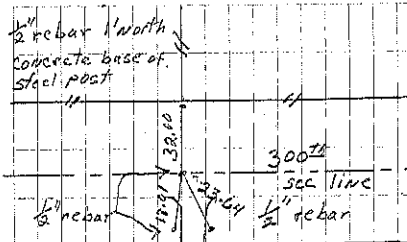 1/2" rebar 1' North
concrete base of
steel post
32.00
300th
sec line
23.64
1/2" rebar
1/2" rebar